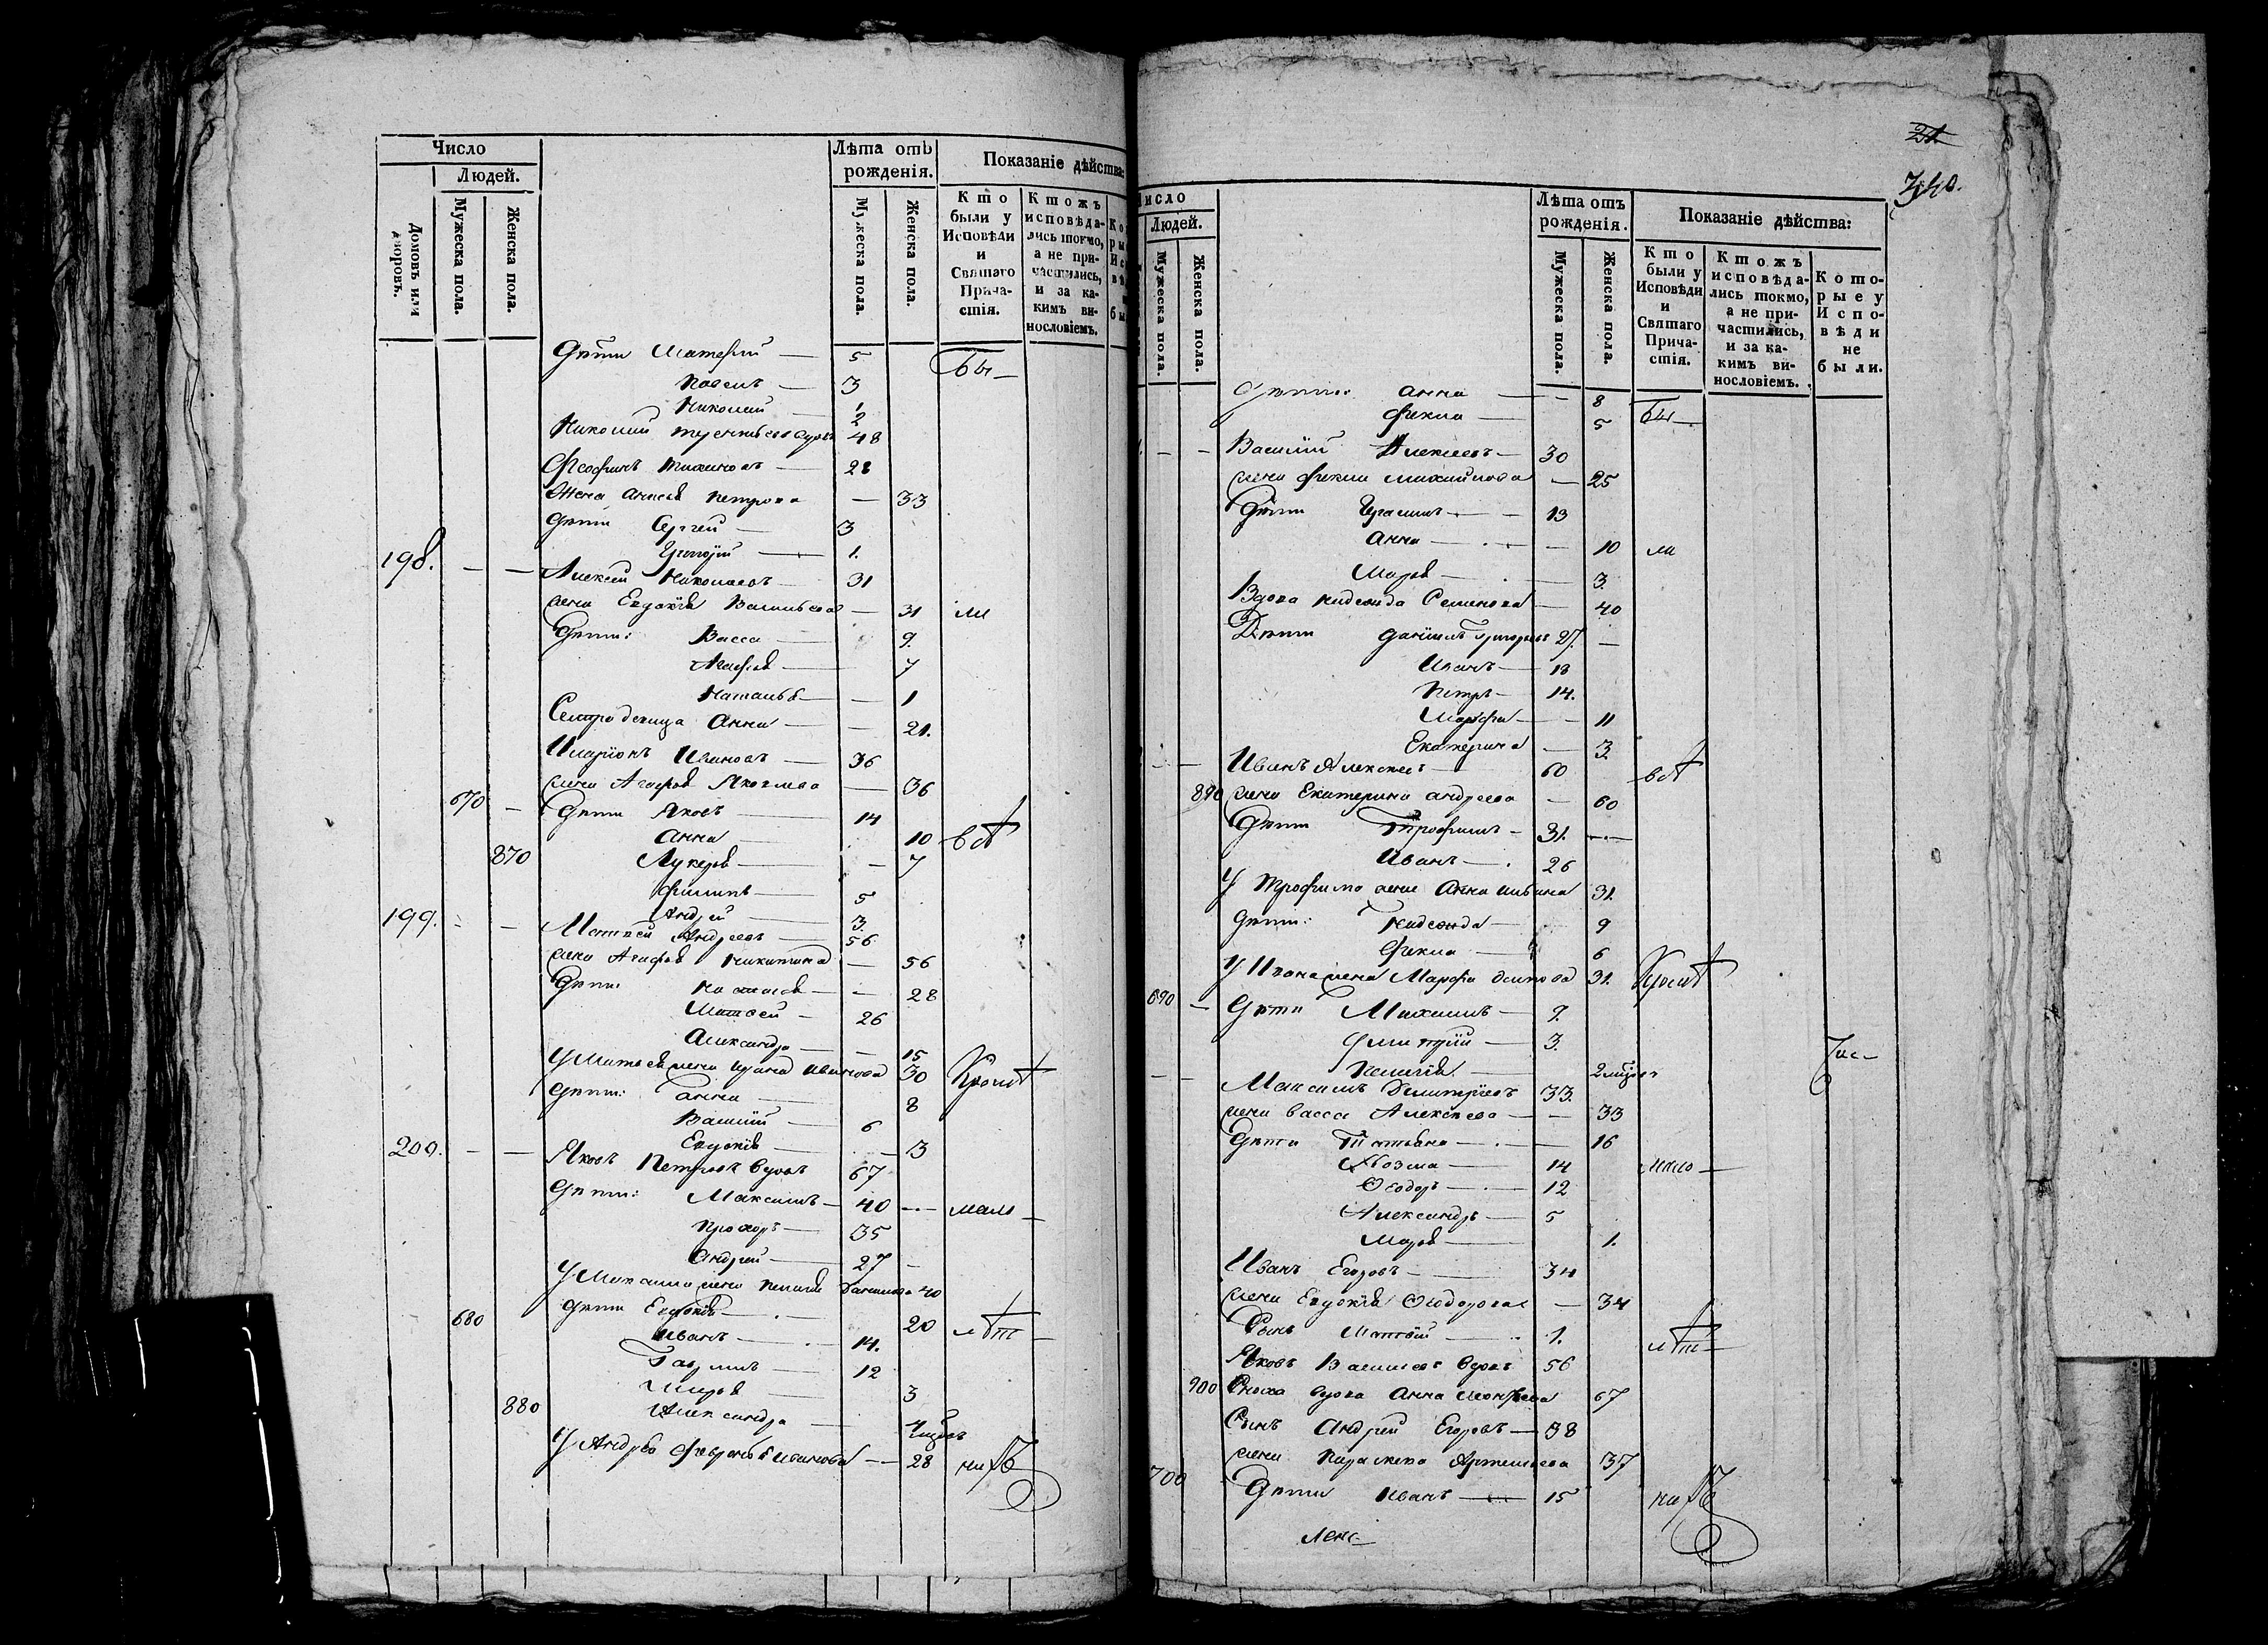 Число
Людей.
Домовъ или дворовъ.
Мужеска пола.
Женска пола.
Лѣта отъ рожденія.
Мужеска пола.
Женска пола.
Показаніе дѣйства:
Кто были у Исповѣди и Святаго Причастія.
Ктожъ исповѣдались токмо, а не причастились, и за какимъ винословіемъ.
Дѣти Матѳей — 5 Бы—
Павелъ — 3
Николай 1/2
Николай 48
Жена Анисья Петрова — 33
Дѣти Сергей — 3
Григорій — 1.
198. — — Алексей Николаевъ — 31
жена Евдокія Васильева — 31 ли
Дѣти: Васса — 9.
Агафія — 7
Наталья — 1
Сестра девица Анна — 21.
Иларіонъ Ивановъ — 36
жена Агафія Яковлева — 36
670 — Дѣти Яковъ — 14
Анна — 10 всѣ
870 Лукерія — 7
Филипъ — 5
Андрей — 3.
199. — Матвей Андреевъ — 56
жена Агафія Никитина — 56
Дѣти Наталія — 28
Матвей — 26
Александра — 15
У Матвея жена Ивановa 30 Кромѣ
Дѣти: Анна — 8
Василій — 6
Евдокія — 3
200. — — Яковъ Петровъ вдовъ 67
Дѣти: Максимъ — 40 — мало—
Прохоръ — 35
Андрей — 27 —
У Максима жена Пелагія Данилова 40
680 Дѣти Евдокія — 20 лѣт—
Иванъ — 14.
Гаврилъ — 12
Марія — 3
880 Александра — 4 мѣсяц
У Андрея Февронья Иванова — 28 нихъ
21
340.
Число
Людей.
Мужеска пола.
Женска пола.
Лѣта отъ рожденія.
Мужеска пола.
Женска пола.
Показаніе дѣйства:
Кто были у Исповѣди и Святаго Причастія.
Ктожъ исповѣдались токмо, а не причастились, и за какимъ винословіемъ.
Которые у Исповѣди не были.
Дѣти: Анна — 8
Фекла — 5 Бы—
— — Василій Алексеевъ — 30
жена Фекла Михайлова — 25
Дѣти Герасимъ — 13
Анна — 10 ли
Марія — 3.
Вдова Надежда Семенова — 40
Дѣти Даніилъ Григорьевъ 27. —
Иванъ — 18
Петръ — 14.
Марфа — 11
Екатерина — 3.
— Иванъ Алексеевъ 60 всѣ
890 жена Екатерина Андреева — 60
Дѣти Трофимъ — 31. —
Иванъ — 26
У Трофима жена Анна Ильина 31.
Дѣти: Надежда — 9
Фекла — 6
У Ивана жена Марфа Осипова 31. Кромѣ
690 — Дѣти Михаилъ — 9.
Димитрій — 3.
Пелагія — 2 мѣсяц
— — Максимъ Димитріевъ 33.
жена Васса Алексеева — 33
Дѣти Татьяна — 16
Козма — 14 мало—
Ѳеодоръ — 12
Александръ — 5
Марія — 1.
Иванъ Егоровъ — 34
жена Евдокія Ѳеодорова — 34
Сынъ Матвей — 1. лѣт—
Яковъ Василіевъ вдовъ 56
900 Сноха вдова Анна Леонтьева 67
Сынъ Андрей Егоровъ — 38
жена Параскева Артемьева 37
700 Дѣти Иванъ — 15 нихъ